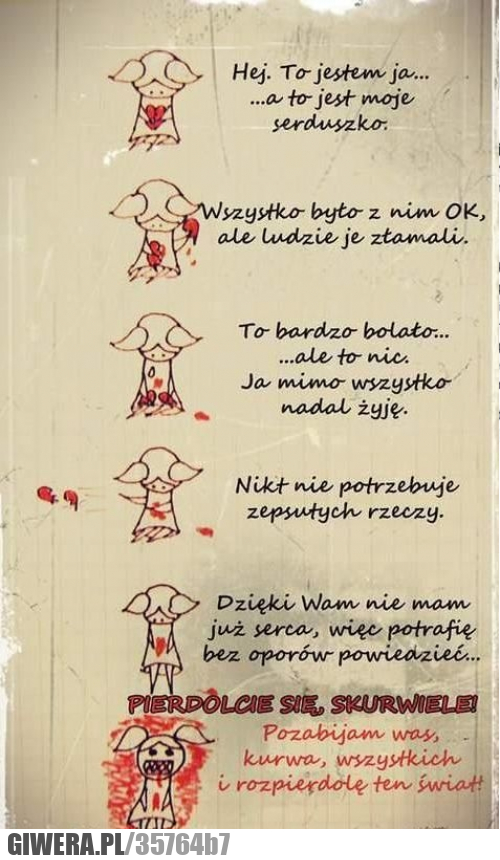 Hej. To jestem ja...
...a to jest moje
serduszko.
Wszystko było z nim OK,
ale ludzie je złamali.
To bardzo bolało...
...ale to nic.
Ja mimo wszystko
nadal żyję.
Nikt nie potrzebuje
zepsutych rzeczy.
Dzięki Wam nie mam
już serca, więc potrafię
bez oporów powiedzieć...
PIERDOLCIE SIĘ, SKURWIELE!
Pozabijam was,
kurwa, wszystkich
i rozpierdolę ten świat!
GIWERA.PL/35764b7